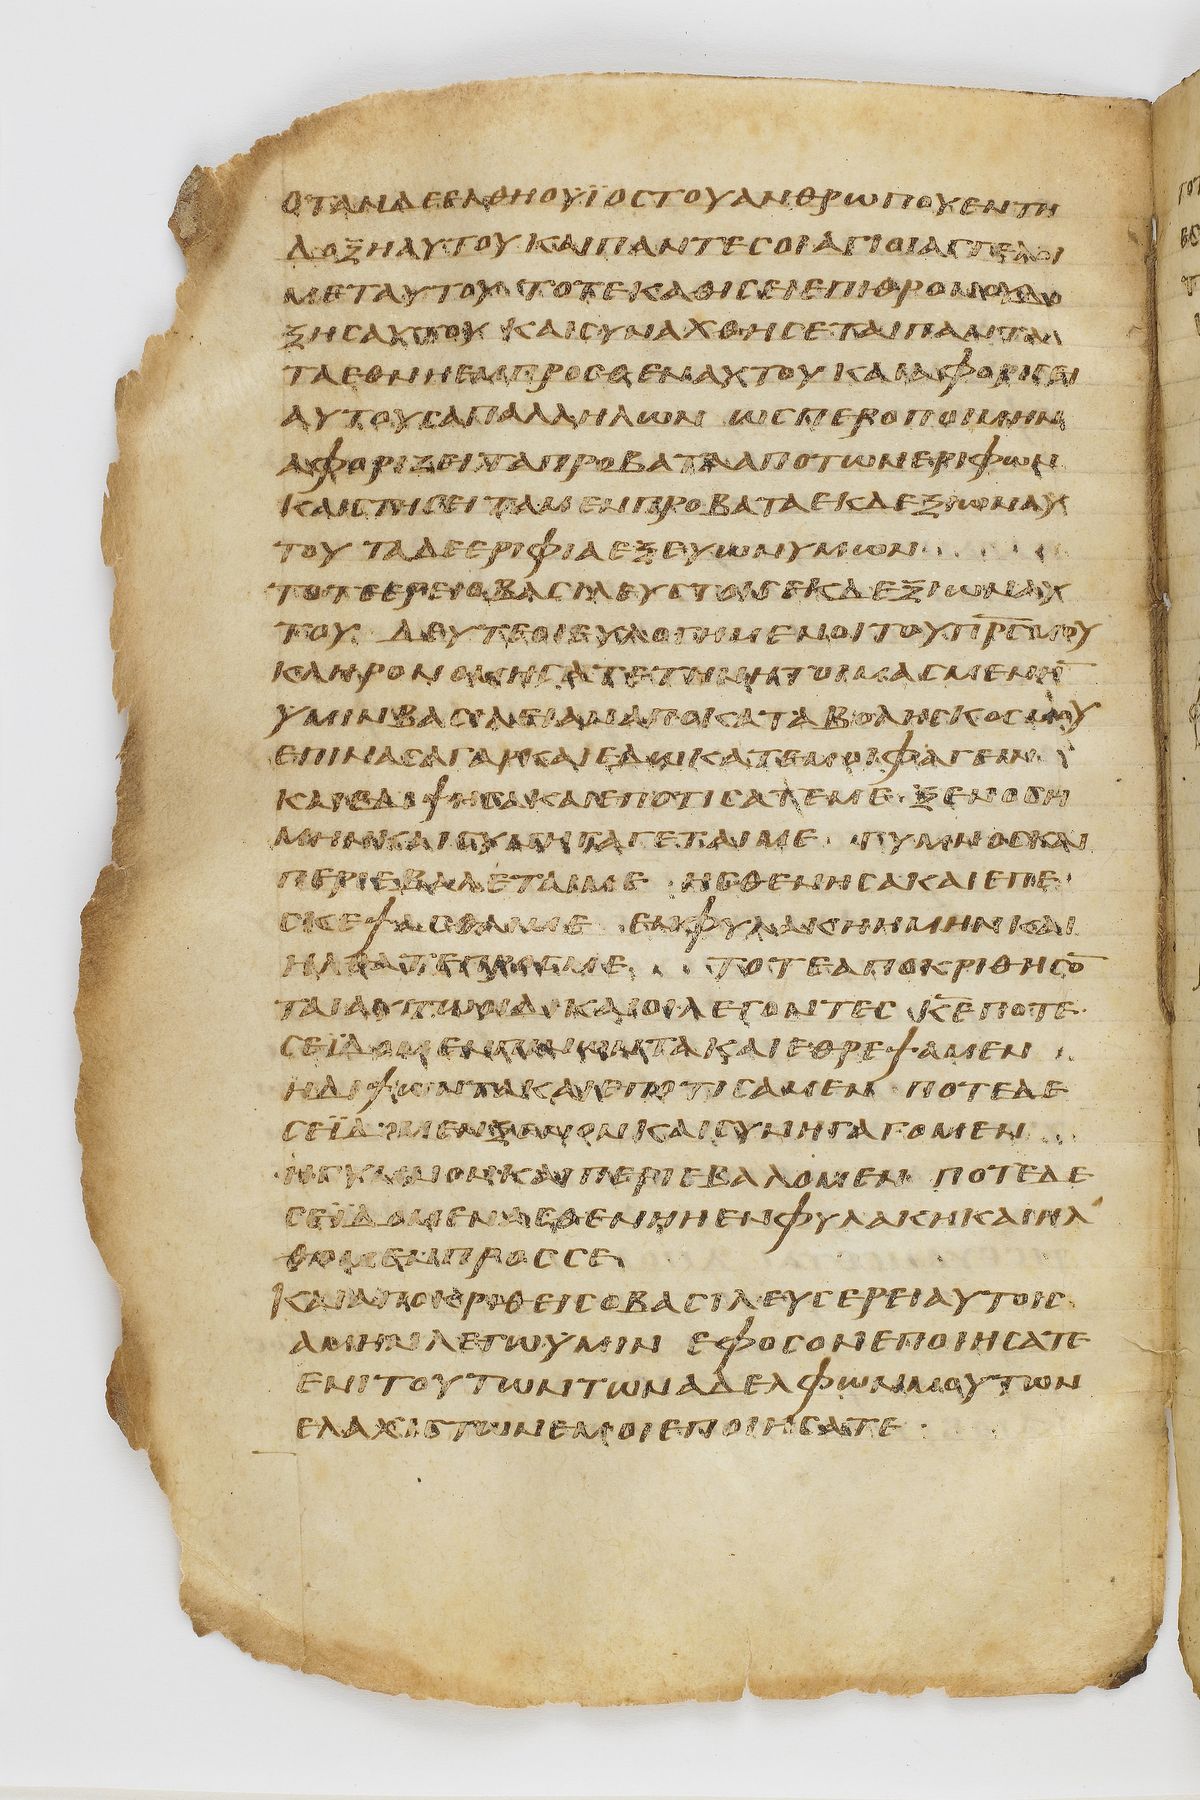 ΟΤΑΝΔΕΕΛΘΗΟΥΪΟΣΤΟΥΑΝΘΡΩΠΟΥΕΝΤΗ
ΔΟΞΗΑΥΤΟΥΚΑΙΠΑΝΤΕΣΟΙΑΓΙΟΙΑΓΓΕΛΟΙ
ΜΕΤΑΥΤΟΥΤΟΤΕΚΑΘΙΣΕΙΕΠΙΘΡΟΝΟΥΔΟ
ΞΗΣΑΥΤΟΥΚΑΙΣΥΝΑΧΘΗΣΕΤΑΙΠΑΝΤΑ
ΤΑΕΘΝΗΕΜΠΡΟΣΘΕΝΑΥΤΟΥΚΑΙΑΦΟΡΙΣΕΙ
ΑΥΤΟΥΣΑΠΑΛΛΗΛΩΝ ΩΣΠΕΡΟΠΟΙΜΗΝ
ΑΦΟΡΙΖΕΙΤΑΠΡΟΒΑΤΑΑΠΟΤΩΝΕΡΙΦΩΝ
ΚΑΙΣΤΗΣΕΙΤΑΜΕΝΠΡΟΒΑΤΑΕΚΔΕΞΙΩΝΑΥ
ΤΟΥ ΤΑΔΕΕΡΙΦΙΑΕΞΕΥΩΝΥΜΩΝ
ΤΟΤΕΕΡΕΙΟΒΑΣΙΛΕΥΣΤΟΙΣΕΚΔΕΞΙΩΝΑΥ
ΤΟΥ ΔΕΥΤΕΟΙΕΥΛΟΓΗΜΕΝΟΙΤΟΥΠΡΣΜΟΥ
ΚΛΗΡΟΝΟΜΗΣΑΤΕΤΗΝΗΤΟΙΜΑΣΜΕΝΗ
ΥΜΙΝΒΑΣΙΛΕΙΑΝΑΠΟΚΑΤΑΒΟΛΗΣΚΟΣΜΟΥ
ΕΠΙΝΑΣΑΓΑΡΚΑΙΕΔΩΚΑΤΕΜΟΙΦΑΓΕΙΝ
ΚΑΙΕΔΙΨΗΣΑΚΑΙΕΠΟΤΙΣΑΤΕΜΕ ΞΕΝΟΣΗ
ΜΗΝΚΑΙΣΥΝΗΓΑΓΕΤΑΙΜΕ ΓΥΜΝΟΣΚΑΙ
ΠΕΡΙΕΒΑΛΕΤΑΙΜΕ ΗΣΘΕΝΗΣΑΚΑΙΕΠΕ
ΣΚΕΨΑΣΘΑΙΜΕ ΕΝΦΥΛΑΚΗΗΜΗΝΚΑΙ
ΗΛΘΑΤΕΠΡΟΣΜΕ ΤΟΤΕΑΠΟΚΡΙΘΗΣΟ
ΤΑΙΑΥΤΩΟΙΔΙΚΑΙΟΙΛΕΓΟΝΤΕΣ ΚΕΠΟΤΕ
ΣΕΪΔΟΜΕΝΠΙΝΩΝΤΑΚΑΙΕΘΡΕΨΑΜΕΝ
ΗΔΙΨΩΝΤΑΚΑΙΕΠΟΤΙΣΑΜΕΝ ΠΟΤΕΔΕ
ΣΕΪΔΟΜΕΝΞΕΝΟΝΚΑΙΣΥΝΗΓΑΓΟΜΕΝ
ΗΓΥΜΝΟΝΚΑΙΠΕΡΙΕΒΑΛΟΜΕΝ ΠΟΤΕΔΕ
ΣΕΪΔΟΜΕΝΑΣΘΕΝΗΗΕΝΦΥΛΑΚΗΚΑΙΗΛ
ΘΟΜΕΝΠΡΟΣΣΕ
ΚΑΙΑΠΟΚΡΙΘΕΙΣΟΒΑΣΙΛΕΥΣΕΡΕΙΑΥΤΟΙΣ
ΑΜΗΝΛΕΓΩΥΜΙΝ ΕΦΟΣΟΝΕΠΟΙΗΣΑΤΕ
ΕΝΙΤΟΥΤΩΝΤΩΝΑΔΕΛΦΩΝΜΟΥΤΩΝ
ΕΛΑΧΙΣΤΩΝΕΜΟΙΕΠΟΙΗΣΑΤΕ